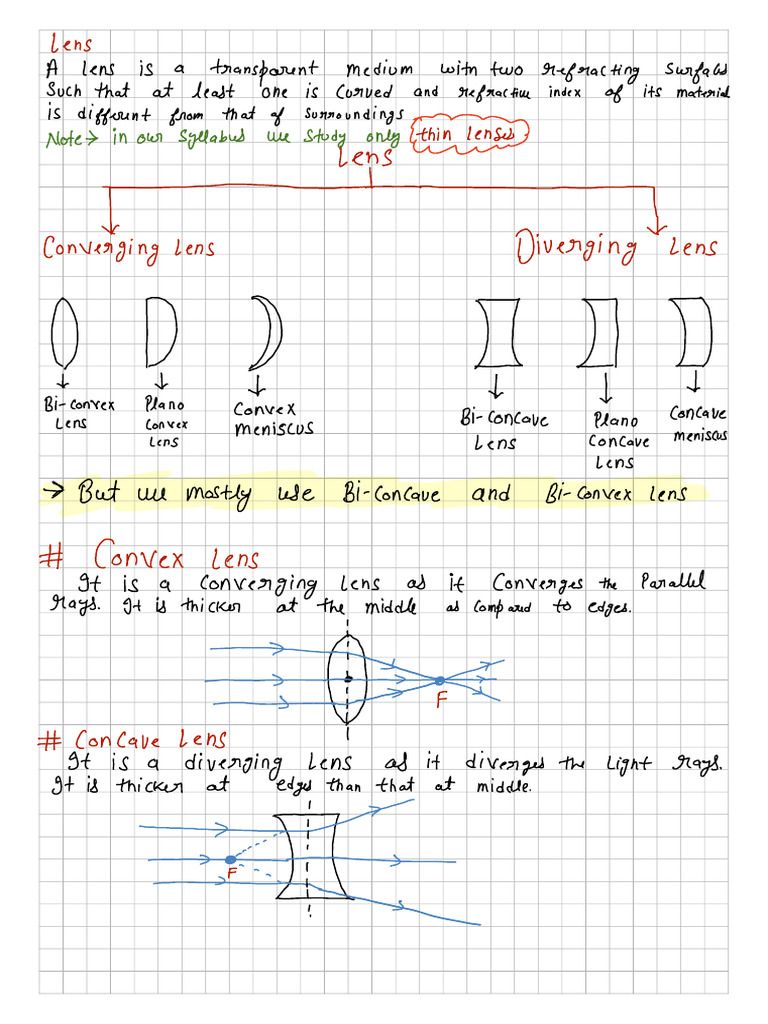 Lens
A lens is a transparent medium with two refracting surfaces
Such that at least one is curved and refractive index of its material
is different from that of surroundings
Note → in our syllabus we study only thin lenses
Lens
Converging Lens
Diverging Lens
Bi-convex Lens
Plano convex Lens
Convex meniscus
Bi-concave Lens
Plano concave Lens
Concave meniscus
→ But we mostly use Bi-concave and Bi-convex lens
# Convex Lens
It is a converging lens as it converges the parallel
rays. It is thicker at the middle as compared to edges.
F
# Concave Lens
It is a diverging lens as it diverges the light rays.
It is thicker at edges than that at middle.
F